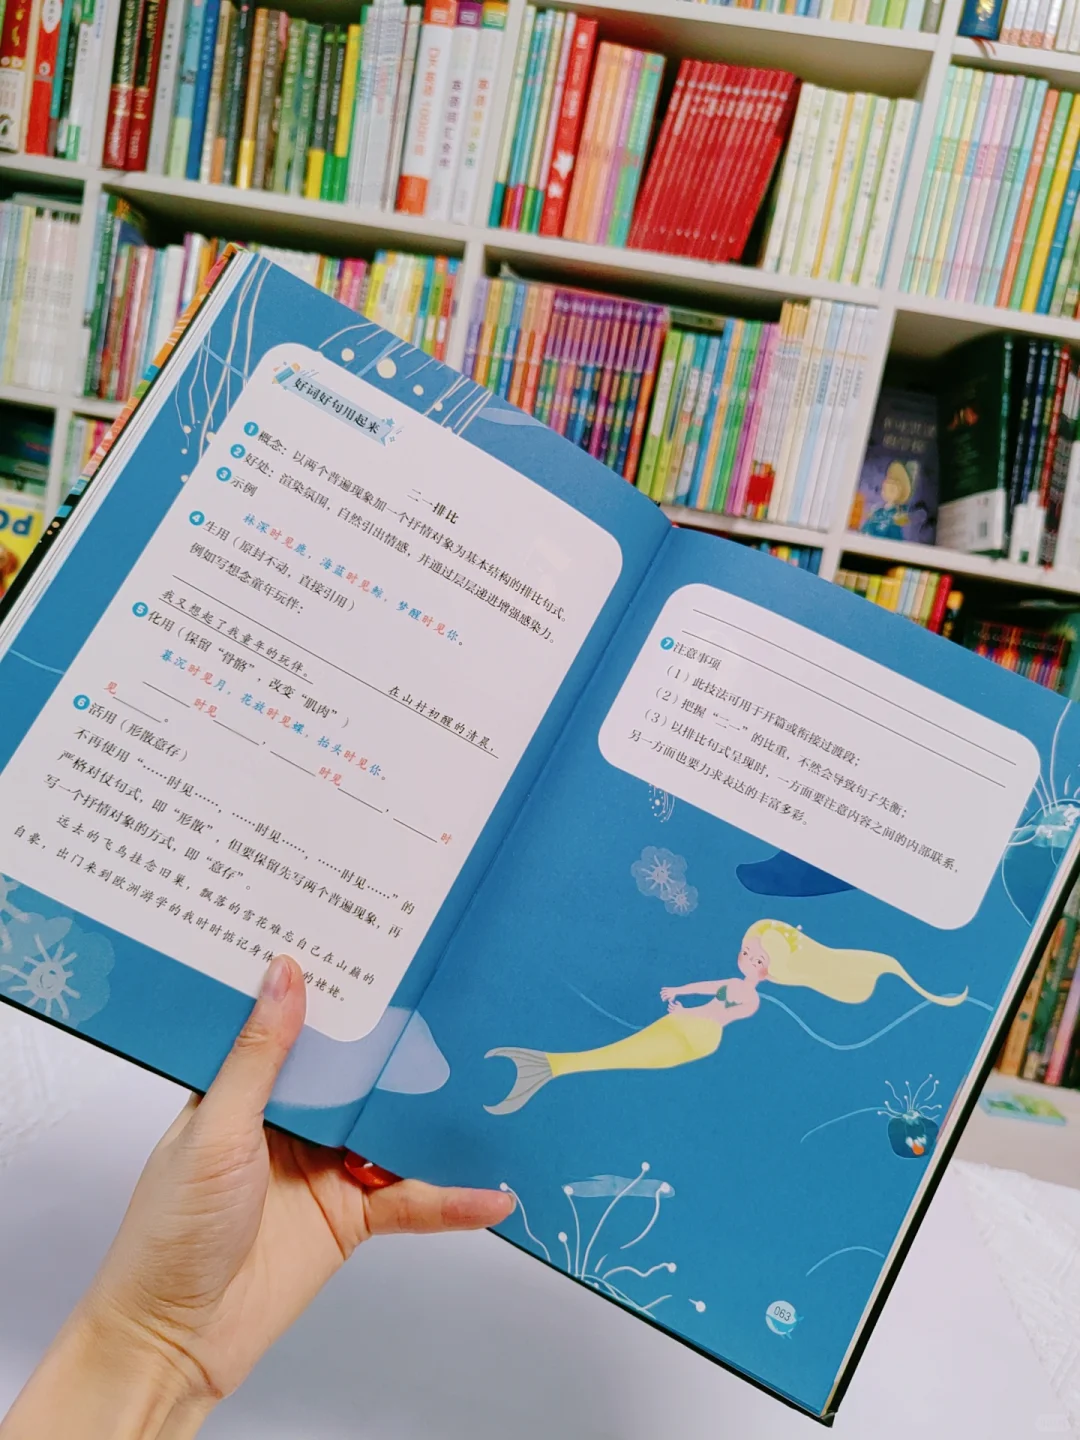 好词好句用起来
二一排比
1 概念：以两个普遍现象加一个抒情对象为基本结构的排比句式。
2 好处：渲染氛围，自然引出情感，并通过层层递进增强感染力。
3 示例
林深时见鹿，海蓝时见鲸，梦醒时见你。
4 生用（原封不动，直接引用）
例如写想念童年玩伴：
在山村初醒的清晨，
我又想起了我童年的玩伴。
5 化用（保留“骨骼”，改变“肌肉”）
暮沉时见月，花放时见蝶，抬头时见你。
时见 ， 时见 ， 时
见 。
6 活用（形散意存）
不再使用“……时见……，……时见……，……时见……”的
严格对仗句式，即“形散”，但要保留先写两个普遍现象，再
写一个抒情对象的方式，即“意存”。
远去的飞鸟挂念旧巢，飘落的雪花难忘自己在山巅的
自豪，出门来到欧洲游学的我时时惦记身体 的姥姥。
7 注意事项
（1）此技法可用于开篇或衔接过渡段；
（2）把握“二一”的比重，不然会导致句子失衡；
（3）以排比句式呈现时，一方面要注意内容之间的内部联系，
另一方面也要力求表达的丰富多彩。
063